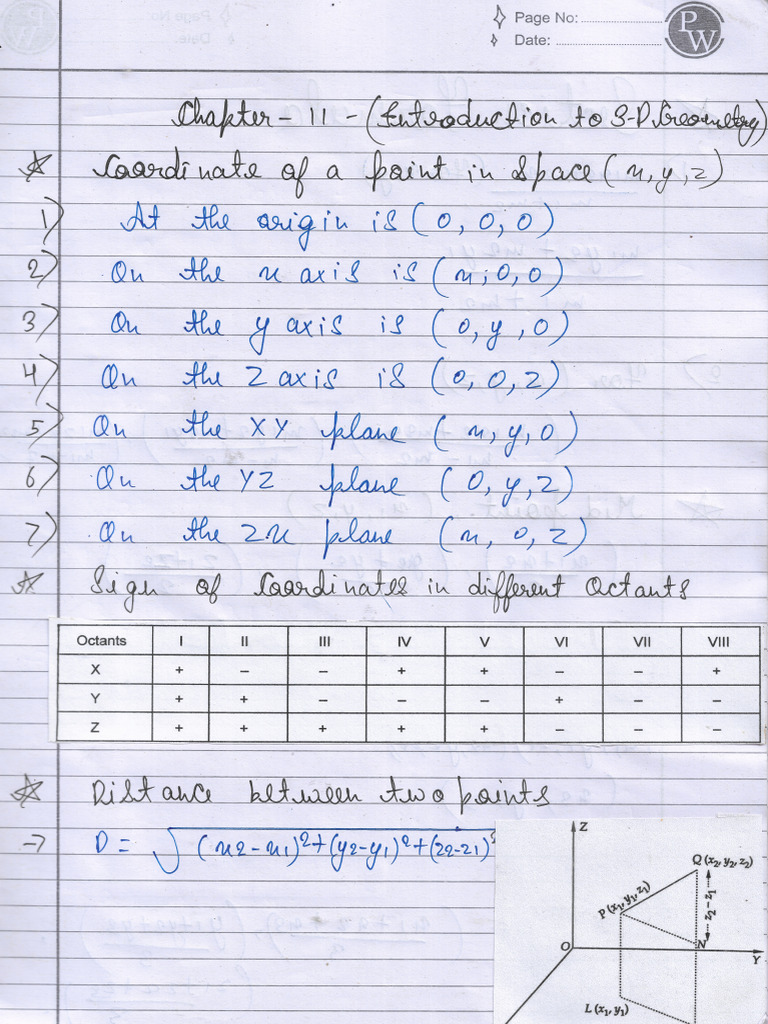 Page No:
Date:
PW
Chapter - 11 - (Introduction to 3-D Geometry)
☆ Coordinate of a point in space (x, y, z)
1) At the origin is (0, 0, 0)
2) On the x axis is (x, 0, 0)
3) On the y axis is (0, y, 0)
4) On the Z axis is (0, 0, z)
5) On the XY plane (x, y, 0)
6) On the YZ plane (0, y, z)
7) On the Zx plane (x, 0, z)
☆ Sign of Coordinates in different Octants
Octants I II III IV V VI VII VIII
X + − − + + − − +
Y + + − − − + − −
Z + + + + + − − −
☆ Distance between two points
→ D = √(x2-x1)²+(y2-y1)²+(z2-z1)²
Z
Q (x₂, y₂, z₂)
P (x₁, y₁, z₁)
z₂ − z₁
O
N
Y
L (x₁, y₁)